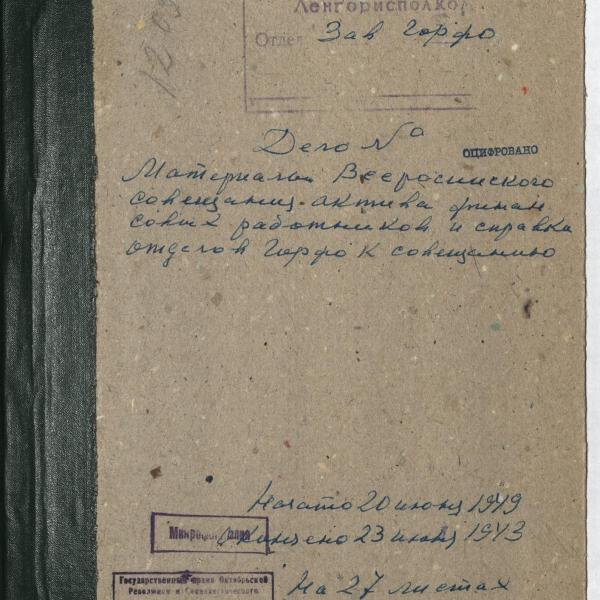 12
Ленгорисполко
Отдел Зав Горфо
Дело №
ОЦИФРОВАНО
Материалы Всеросийского
совещания-актива финан
совых работников и справки
отделов Горфо к совещанию
Начато 20 июня 1949
Окончено 23 июня 1943
На 27 листах
Государственный архив Октябрьской
Революции и Социалистического